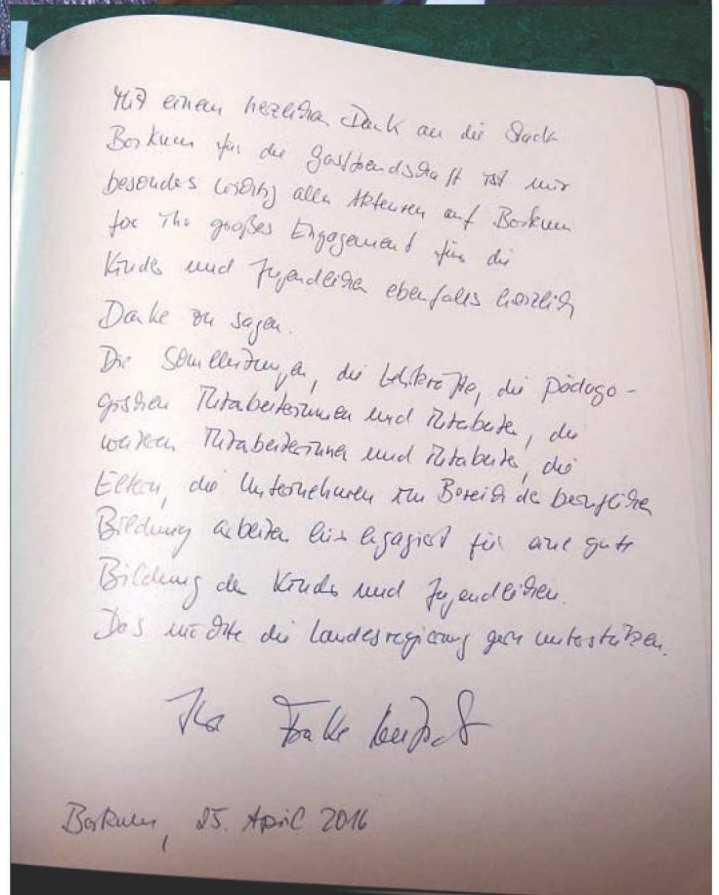 Mit einem herzlichen Dank an die Stadt
Borkum für die Gastfreundschaft ist mir
besonders wichtig allen Akteuren auf Borkum
für ihr großes Engagement für die
Kinder und Jugendlichen ebenfalls herzlich
Danke zu sagen.
Die Schulleitungen, die Lehrkräfte, die pädago-
gischen Mitarbeiterinnen und Mitarbeiter, die
weiteren Mitarbeiterinnen und Mitarbeiter, die
Eltern, die Unternehmen im Bereich der beruflichen
Bildung arbeiten hier engagiert für eine gute
Bildung der Kinder und Jugendlichen.
Das möchte die Landesregierung gern unterstützen.
Ihre Frauke
Borkum, 25. April 2016